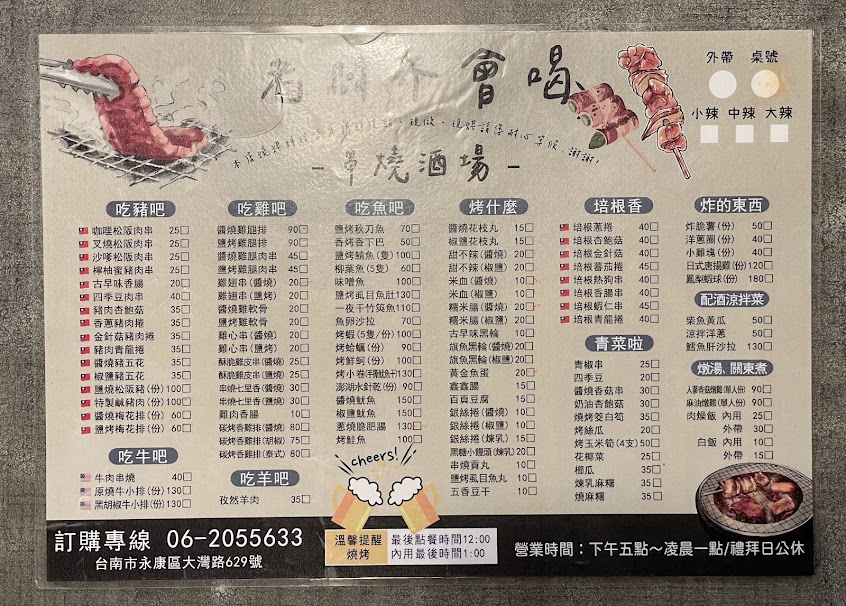 會喝
外帶 桌號
小辣 中辣 大辣
- 串燒酒場 -
吃豬吧
咖哩松阪肉串 25
叉燒松阪肉串 25
沙嗲松阪肉串 25
檸柚蜜豬肉串 25
古早味香腸 20
四季豆肉串 40
豬肉杏鮑菇 35
香蔥豬肉捲 35
金針菇豬肉捲 35
豬肉青龍捲 35
醬燒豬五花 35
椒鹽豬五花 35
鹽燒松阪豬(份) 100
特製鹹豬肉(份) 100
醬燒梅花排(份) 60
鹽烤梅花排(份) 60
吃牛吧
牛肉串燒 40
原燒牛小排(份) 130
黑胡椒牛小排(份) 130
吃雞吧
醬燒雞腿排 90
鹽烤雞腿排 90
醬燒雞腿肉串 45
鹽烤雞腿肉串 45
雞翅串(醬燒) 20
雞翅串(鹽烤) 20
醬燒雞軟骨 20
鹽烤雞軟骨 20
雞心串(醬燒) 20
雞心串(鹽烤) 20
酥脆雞皮串(醬燒) 25
酥脆雞皮串(鹽烤) 25
串燒七里香(醬燒) 30
串燒七里香(鹽燒) 30
雞肉香腸 10
碳烤香雞排(醬燒) 80
碳烤香雞排(胡椒) 75
碳烤香雞排(泰式) 80
吃羊吧
孜然羊肉 35
吃魚吧
鹽烤秋刀魚 70
香烤香下巴 50
鹽烤鯖魚(隻) 100
柳葉魚(5隻) 60
味噌魚 100
鹽烤虱目魚肚 130
一夜干竹筴魚 110
魚卵沙拉 70
烤蝦(5隻/份) 100
烤蛤蠣(份) 90
烤鮮蚵(份) 100
烤小卷(汗蒸魷魚干) 130
澎湖水針乾(份) 90
醬燒魷魚 150
椒鹽魷魚 150
蔥燒脆肥腸 130
烤鮭魚 100
cheers!
烤什麼
醬燒花枝丸 15
椒鹽花枝丸 15
甜不辣(醬燒) 20
甜不辣(椒鹽) 20
米血(醬燒) 10
米血(椒鹽) 10
糯米腸(醬燒) 20
糯米腸(椒鹽) 20
古早味黑輪 10
旗魚黑輪(醬燒) 20
旗魚黑輪(椒鹽) 20
黃金魚蛋 20
鑫鑫腸 15
百頁豆腐 15
銀絲捲(醬燒) 10
銀絲捲(椒鹽) 10
銀絲捲(煉乳) 15
黑糖小饅頭(煉乳) 20
串燒貢丸 10
鹽烤虱目魚丸 10
五香豆干 10
培根香
培根蔥捲 40
培根杏鮑菇 40
培根金針菇 40
培根蕃茄捲 45
培根熱狗串 40
培根香腸串 40
培根蝦仁串 45
培根青龍捲 40
青菜啦
青椒串 25
四季豆 20
醬燒香菇串 30
奶油杏鮑菇 30
燒烤筊白筍 35
烤絲瓜 20
烤玉米筍(4支) 50
花椰菜 25
櫛瓜 35
煉乳麻糬 35
燒麻糬 35
炸的東西
炸脆薯(份) 50
洋蔥圈(份) 40
小雞塊(份) 40
日式唐揚雞(份) 120
鳳梨蝦球(份) 180
配酒涼拌菜
柴魚黃瓜 50
涼拌洋蔥 50
鱈魚肝沙拉 130
燉湯、關東煮
人蔘香菇燉雞(單人份) 90
麻油燉雞(單人份) 90
肉燥飯 內用 25
外帶 30
白飯 內用 10
外帶 15
訂購專線 06-2055633
台南市永康區大灣路629號
溫馨提醒 最後點餐時間12:00
燒烤 內用最後時間1:00
營業時間：下午五點～凌晨一點/禮拜日公休